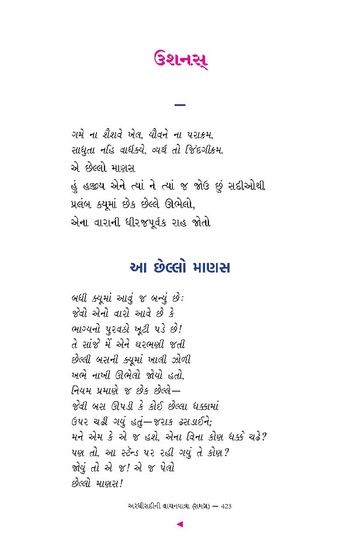 ઉશનસ્
–
ગમે ના શૈશવે ખેલ, યૌવને ના પરાક્રમ,
સાધુતા નહિ વાર્ધક્યે, વ્યર્થ તો જિંદગીક્રમ.
એ છેલ્લો માણસ
હું હજીય એને ત્યાં ને ત્યાં જ જોઉં છું સદીઓથી
પ્રલંબ ક્યૂમાં છેક છેલ્લે ઊભેલો,
એના વારાની ધીરજપૂર્વક રાહ જોતો
આ છેલ્લો માણસ
બધી ક્યૂમાં આવું જ બન્યું છેઃ
જેવો એનો વારો આવે છે કે
ભાગ્યનો પુરવઠો ખૂટી પડે છે!
તે સાંજે મેં એને ઘરભણી જતી
છેલ્લી બસની ક્યૂમાં ખાલી ઝોળી
ખભે નાખી ઊભેલો જોયો હતો,
નિયમ પ્રમાણે જ છેક છેલ્લે—
જેવી બસ ઊપડી કે કોઈ છેલ્લા ધક્કામાં
ઉપર ચઢી ગયું હતું—જરાક ઢસડાઈને;
મને એમ કે એ જ હશે, એના વિના કોણ ધક્કે ચઢે?
પણ તો, આ સ્ટૅન્ડ પર રહી ગયું તે કોણ?
જોયું તો એ જ! એ જ પેલો
છેલ્લો માણસ!
અરધીસદીની વાચનયાત્રા (સમગ્ર) — 423
◀